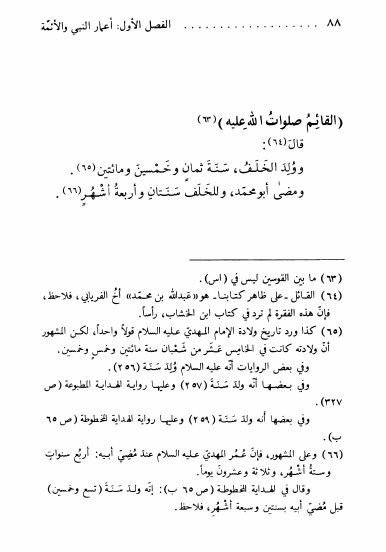 ٨٨ . . . . . . . . . . . . . . . . . . . . الفصل الأول: أعمار النبي والأئمّة
(القائِمُ صلواتُ اللهِ عليه) (٦٣)
قالَ (٦٤):
ووُلِدَ الخَلَفُ، سَنَةَ ثمانٍ وخَمْسينَ ومائتين (٦٥).
ومضىٰ أبومحمّد، وللخَلَف سَنَتانِ وأربعةُ أشْهُرٍ (٦٦).
(٦٣) ما بين القوسين ليس في (اس).
(٦٤) القائل ـ على ظاهر كتابنا ـ هو «عبدالله بن محمّد» أخُ الفريابي، فلاحظ،
فإنّ هذه الفقرة لم ترد في كتاب ابن الخشاب، رأساً.
(٦٥) كذا ورد تاريخ ولادة الإمام المهديّ عليه السلام قولاً واحداً، لكن المشهور
أنّ ولادته كانت في الخامِس عَشَر من شَعْبان سنة مائتين وخمسٍ وخمسين.
وفي بعض الروايات أنّه عليه السلام وُلِدَ سَنَة (٢٥٦).
وفي بـعـضـها أنّه ولدَ سَنَة (٢٥٧) وعليها رواية الهداية المطبوعة (ص
٣٢٧).
وفي بعضها أنه ولدَ سَنَة (٢٥٩) وعليها رواية الهداية المخطوطة (ص ٦٥
ب).
(٦٦) وعلى المشهور، فإنّ عُمُر المهديّ عليه السلام عندَ مُضِيّ أبيه: أربعُ سنواتٍ
وستةُ أشْهُر، وثلاثة وعشرونَ يوماً.
وقال في الهداية المخطوطة (ص ٦٥ ب): إنّه ولدَ سَنَةَ (تسعٍ وخمسين)
قبل مُضيّ أبيه بسنتين وسبعة أشْهُر، فلاحظ.